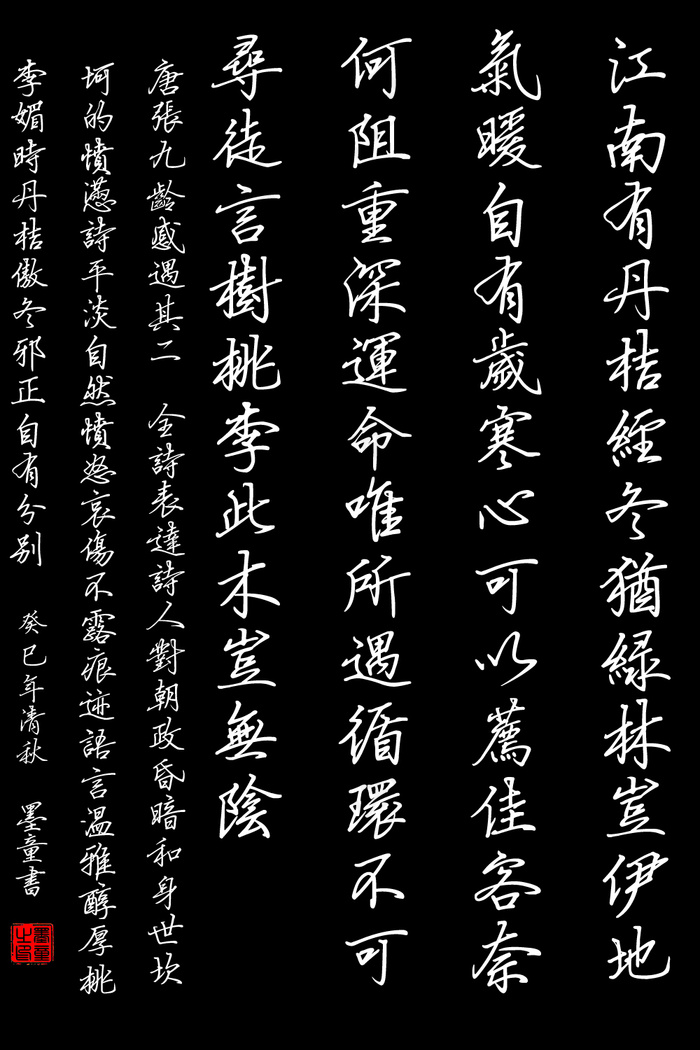 江南有丹桔經冬猶緑林豈伊地
氣暖自有歲寒心可以薦佳客奈
何阻重深運命唯所遇循環不可
尋徒言樹桃李此木豈無陰
唐張九齡感遇其二 全詩表達詩人對朝政昏暗和身世坎
坷的憤懑詩平淡自然憤怒哀傷不露痕迹語言温雅醇厚桃
李媚時丹桔傲冬邪正自有分别 癸巳年清秋 墨童書